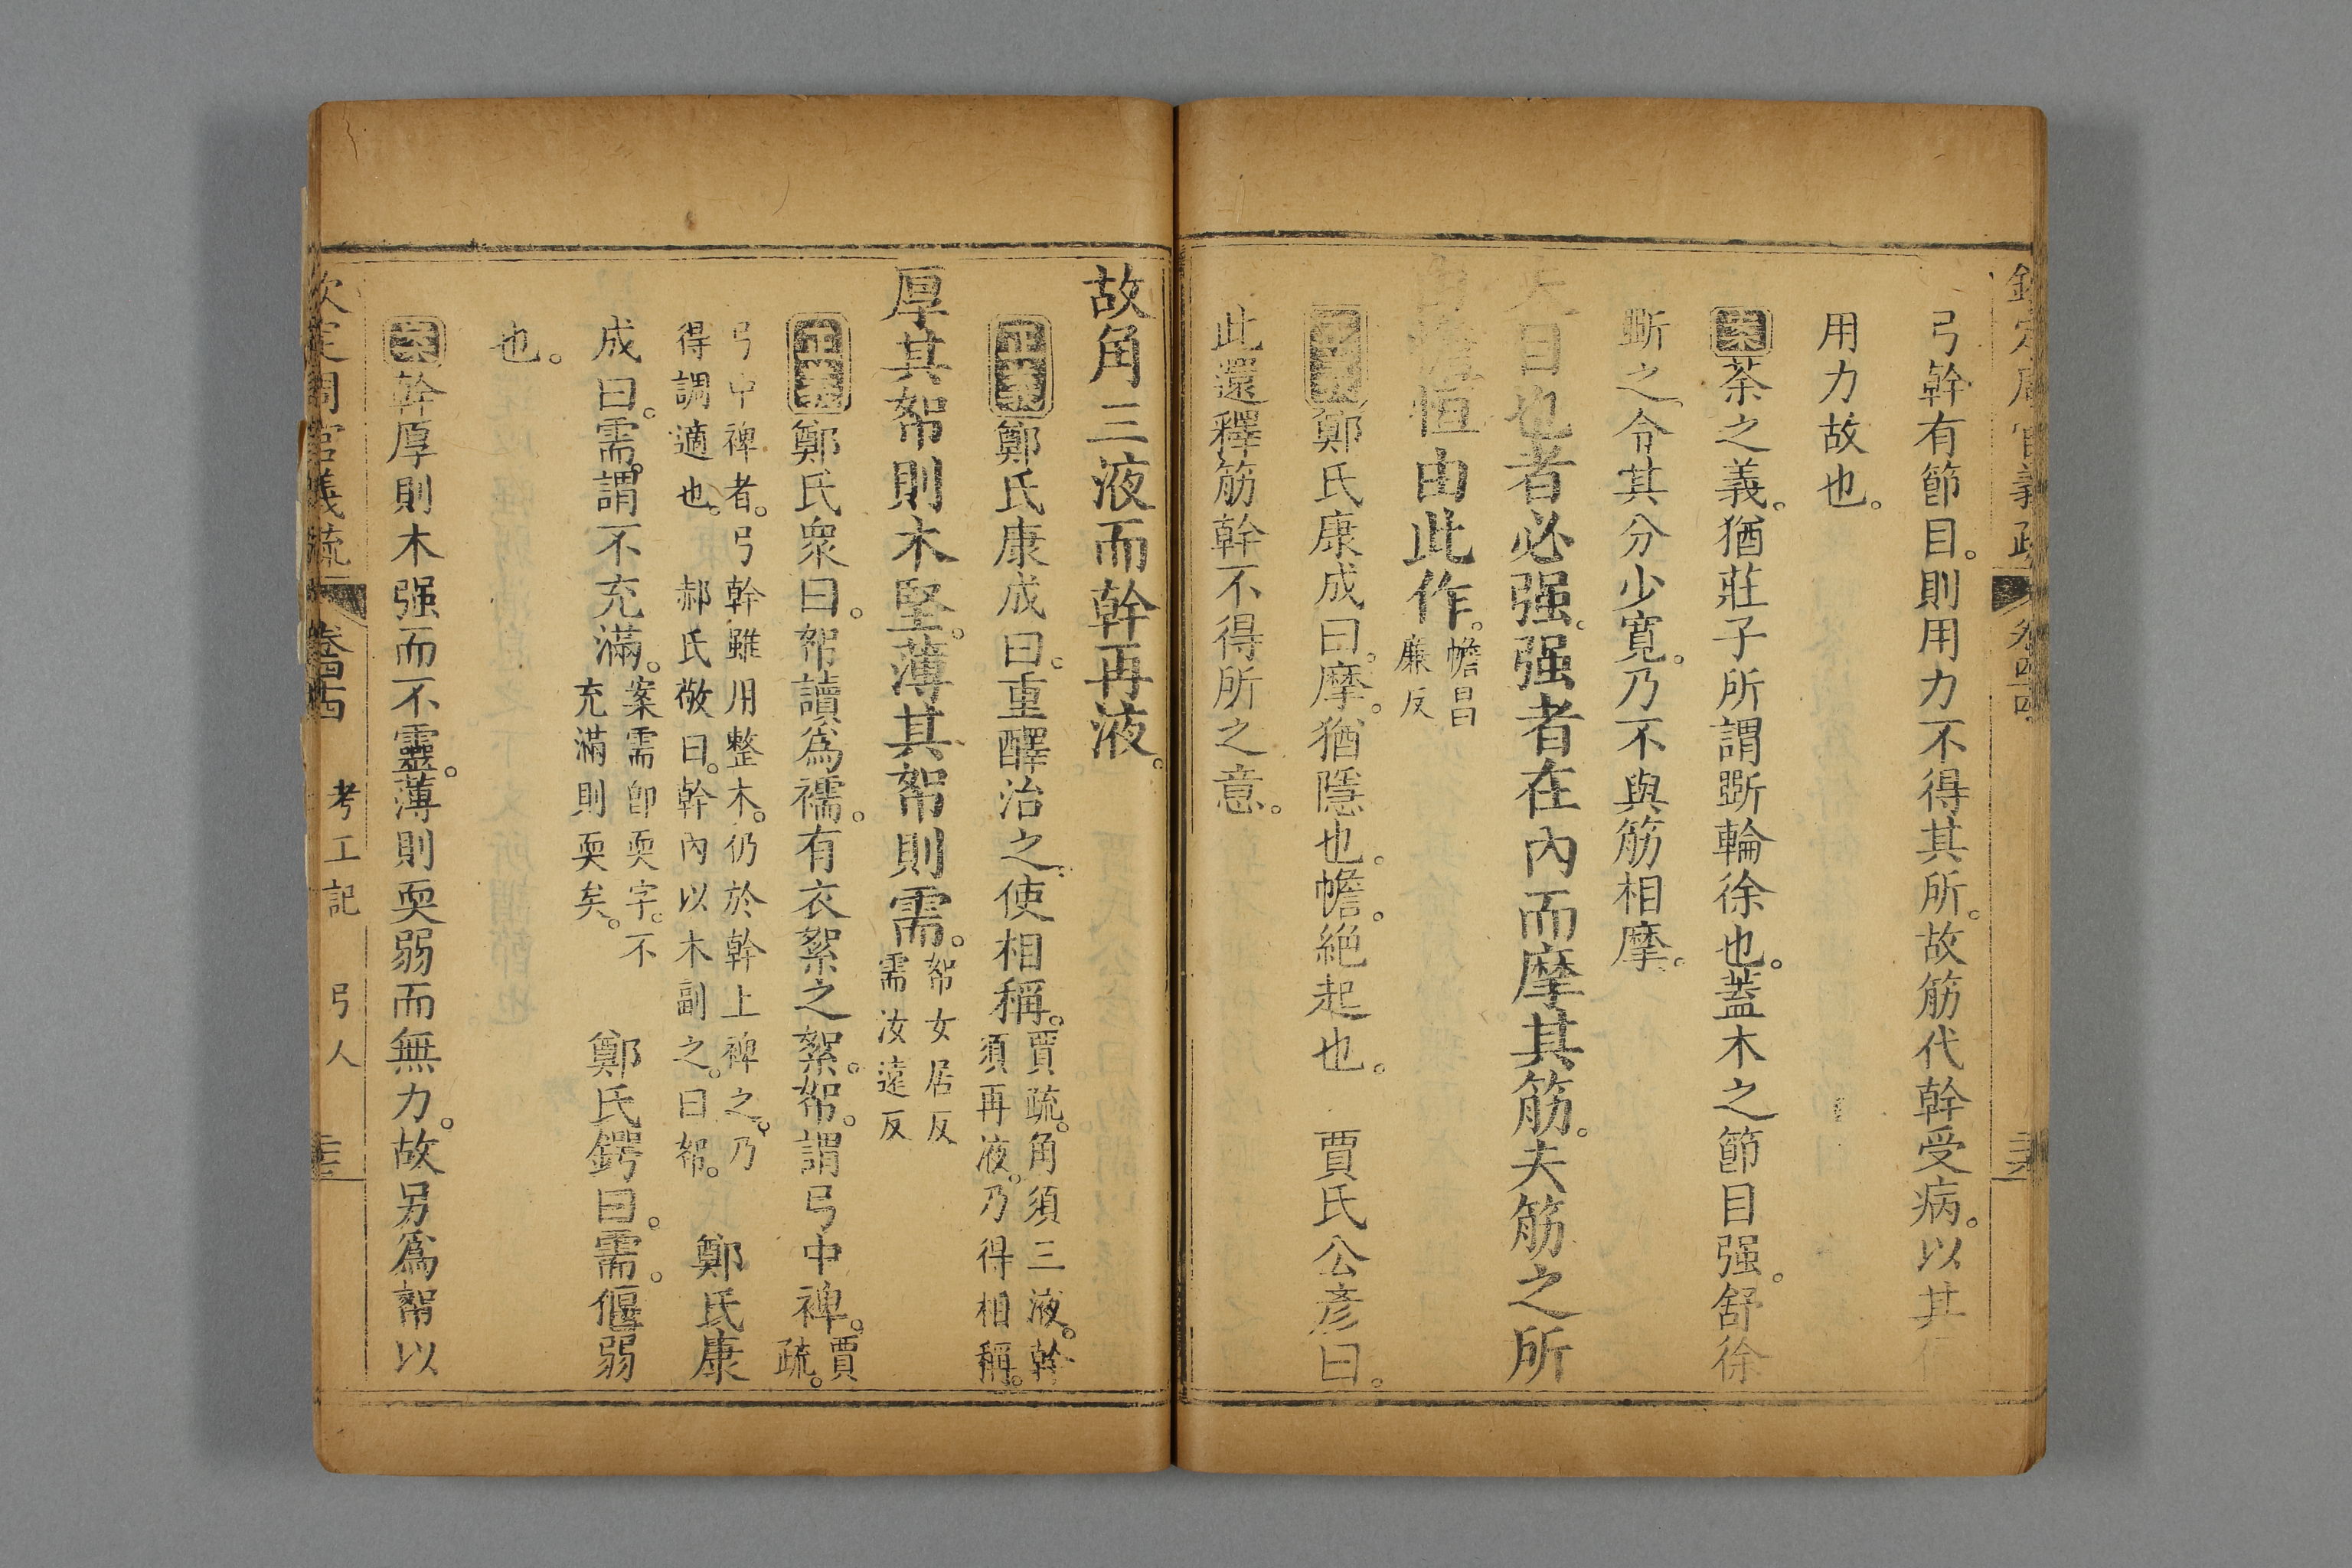 弓幹有節目。則用力不得其所。故筋代幹受病。以其
用力故也。
案荼之義。猶莊子所謂斲輪徐也。蓋木之節目强。舒徐
斲之。令其分少寬。乃不與筋相摩。
夫目也者必强。强者在內而摩其筋。夫筋之所
由幨恒由此作。幨昌廉反
正義鄭氏康成曰。摩。猶隱也。幨。絕起也。 賈氏公彥曰。
此還釋筋幹不得所之意。
故角三液而幹再液。
正義鄭氏康成曰。重醳治之。使相稱。賈疏。角須三液。幹須再液。乃得相稱。
厚其帤則木堅。薄其帤則需。帤女居反需汝遠反
正義鄭氏衆曰。帤讀爲襦。有衣絮之絮。帤。謂弓中裨。賈疏。
弓中裨者。弓幹雖用整木。仍於幹上裨之。乃得調適也。 郝氏敬曰。幹內以木副之。曰帤。 鄭氏康
成曰。需。謂不充滿。案需卽耎字。不充滿則耎矣。 鄭氏鍔曰。需。偃弱
也。
案幹厚則木强而不靈。薄則耎弱而無力。故另爲帤以
欽定周官義疏 卷四十四 考工記 弓人